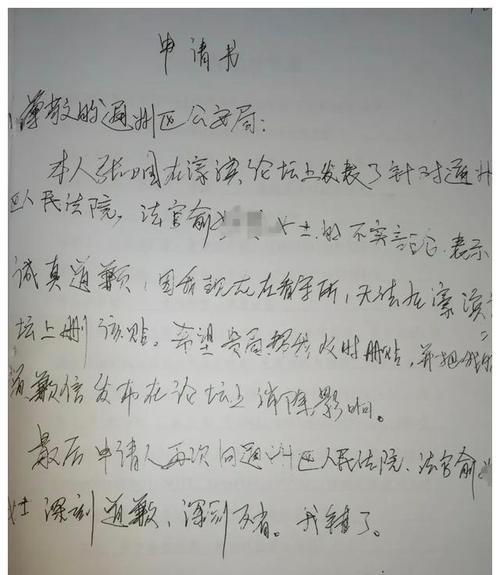 申请书
尊敬的通州区公安局:
本人张国在濠滨论坛上发表了针对通州
区人民法院,法官俞 女士的不实言论.表示
诚真道歉,因我现在在看守所,无法在濠滨
坛上删该贴。希望贵局帮我及时删贴,并把我的
道歉信发布在论坛上消除影响。
最后申请人再次向通州区人民法院.法官俞
女士深刻道歉,深刻反省。我错了。